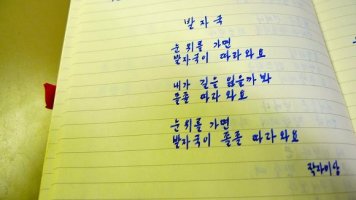 발자국
눈 위를 가면
발자국이 따라와요
내가 길을 잃을까봐
졸졸 따라와요
눈 위를 가면
발자국이 졸졸 따라와요
작자미상